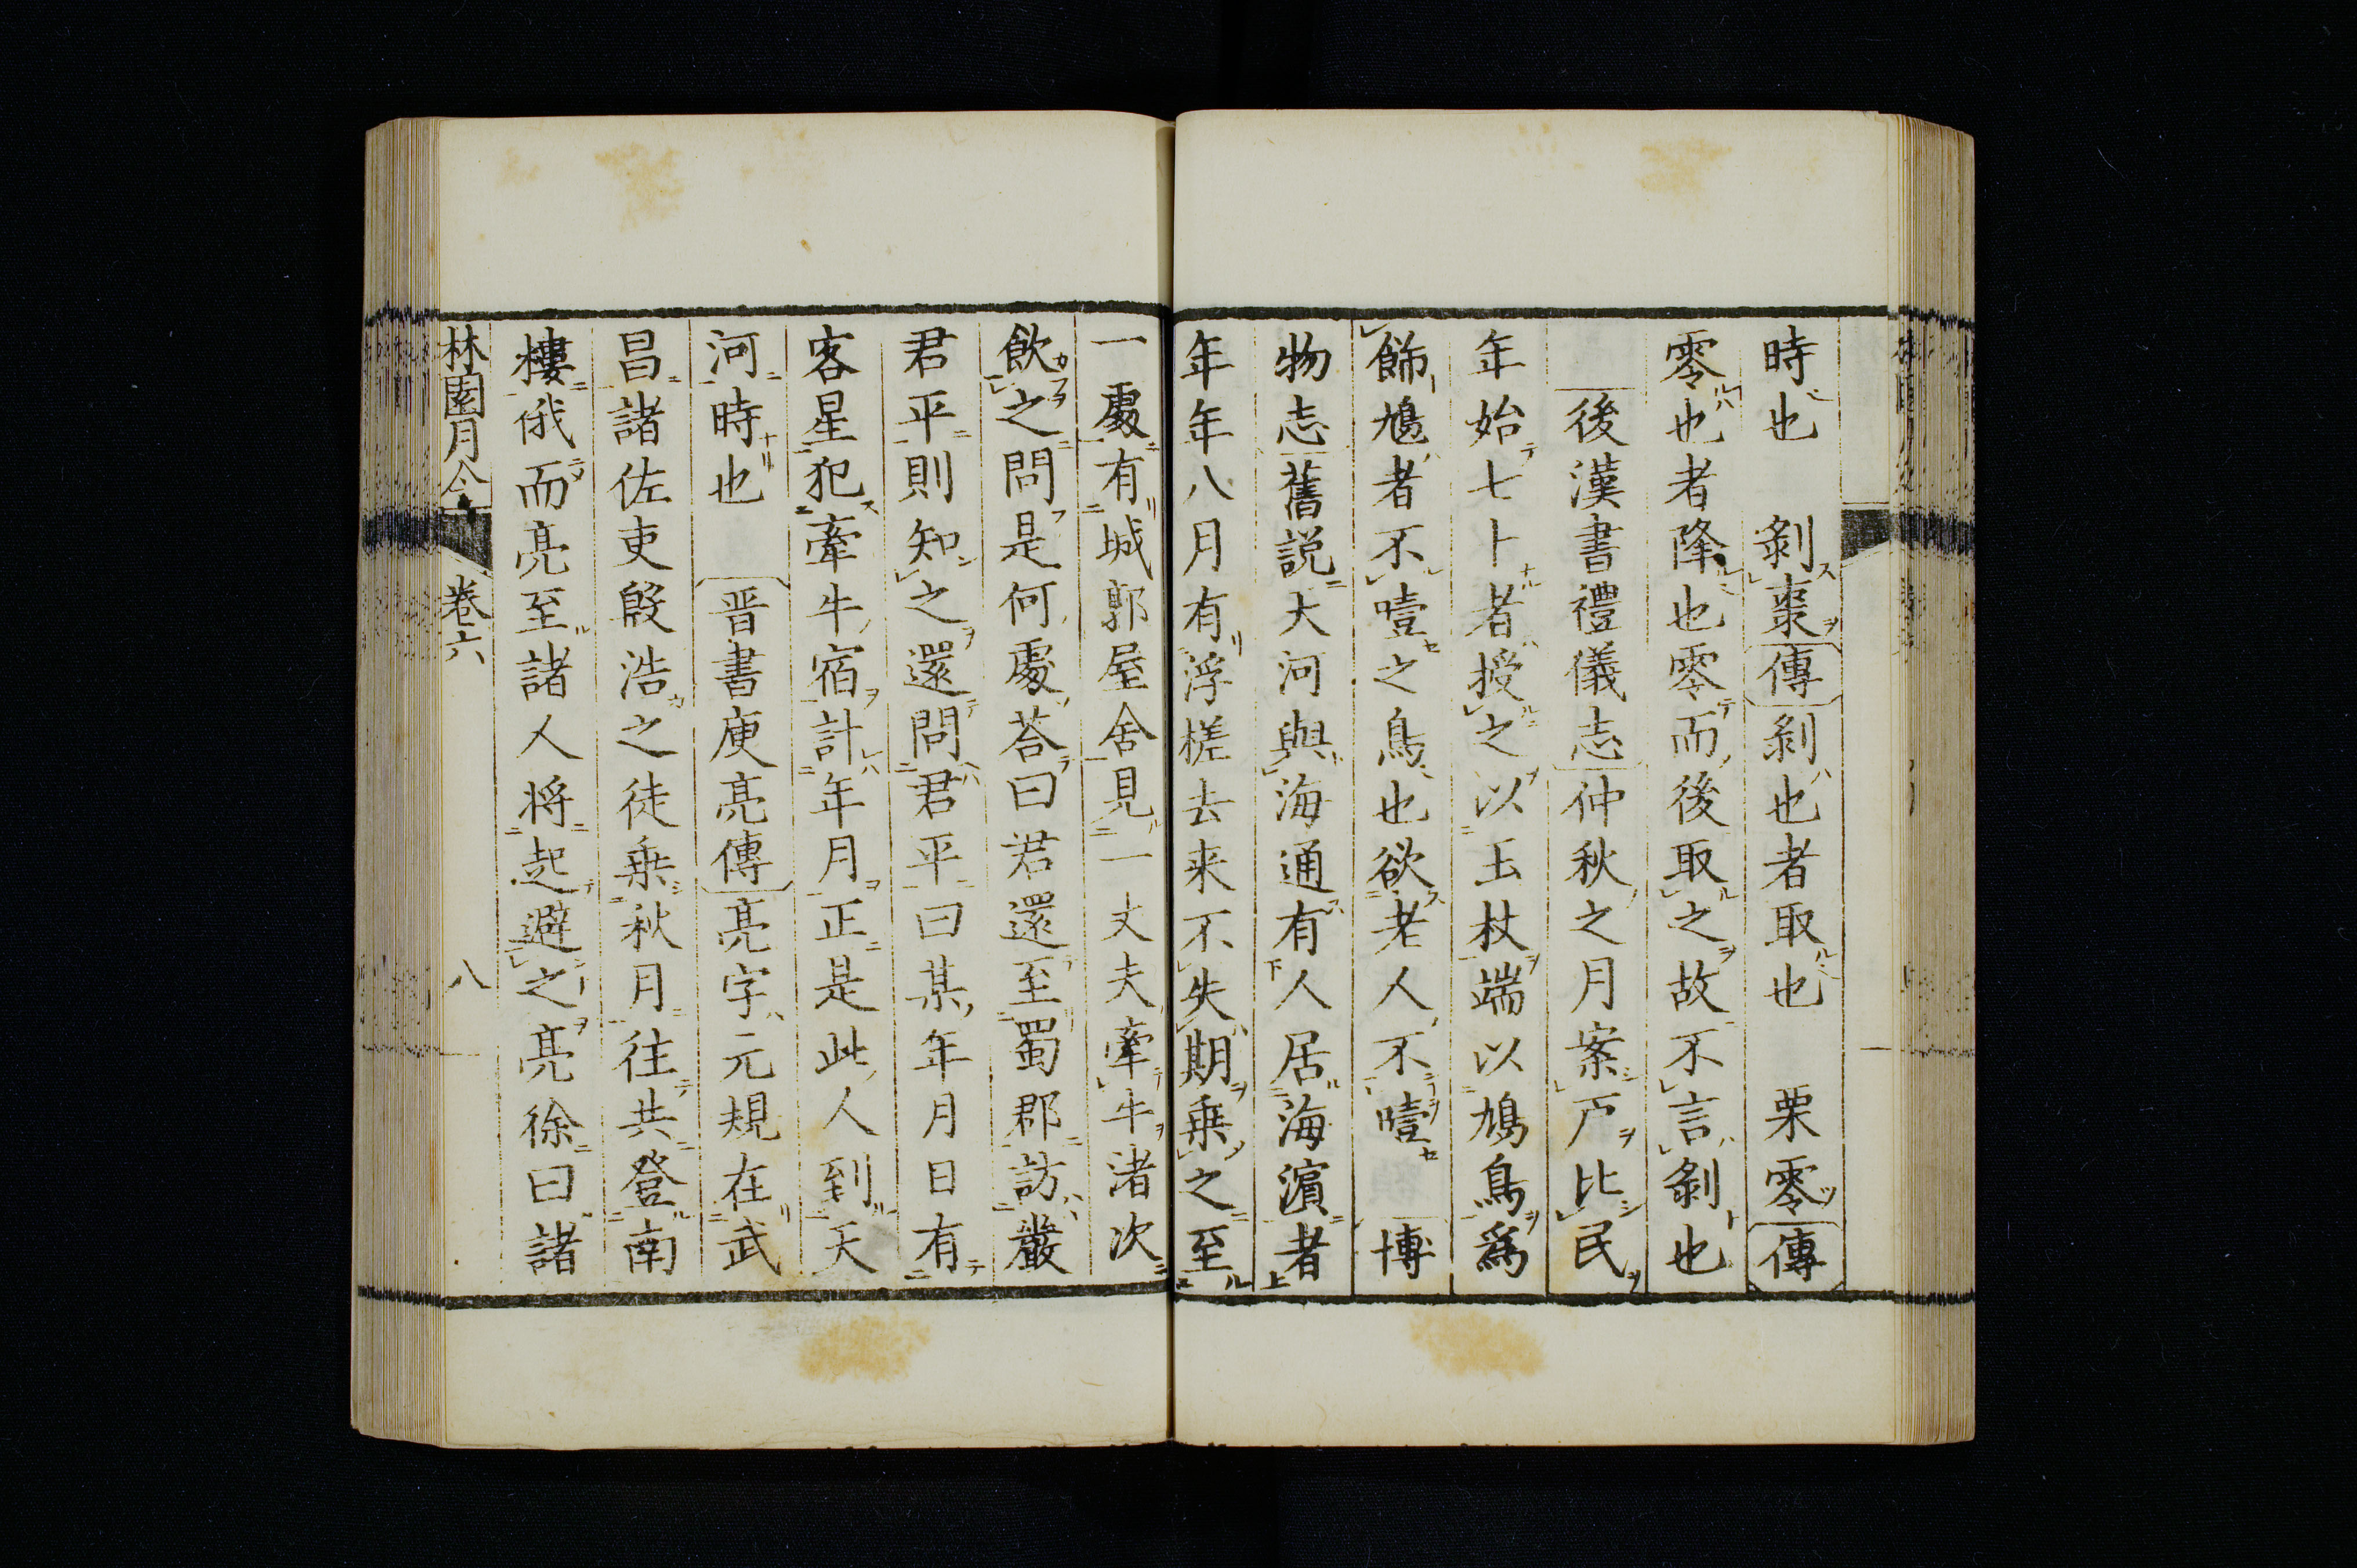 時也 剝棗傳剝也者取也 栗零傳
零也者降也零而後取之故不言剝也
後漢書禮儀志仲秋之月案戸比民
年始七十者授之以玉杖端以鳩鳥爲
飾鳩者不噎之鳥也欲老人不噎 博
物志舊説大河與海通有人居海濵者
年年八月有浮槎去来不失期乗之至
一處有城郭屋舍見一丈夫牽牛渚次
飲之問是何處荅曰君還至蜀郡訪嚴
君平則知之還問君平曰某年月日有
客星犯牽牛宿計年月正是此人到天
河時也 晋書庾亮傳亮字元規在武
昌諸佐吏殷浩之徒乗秋月往共登南
樓俄而亮至諸人将起避之亮徐曰諸
林園月令 卷六 八